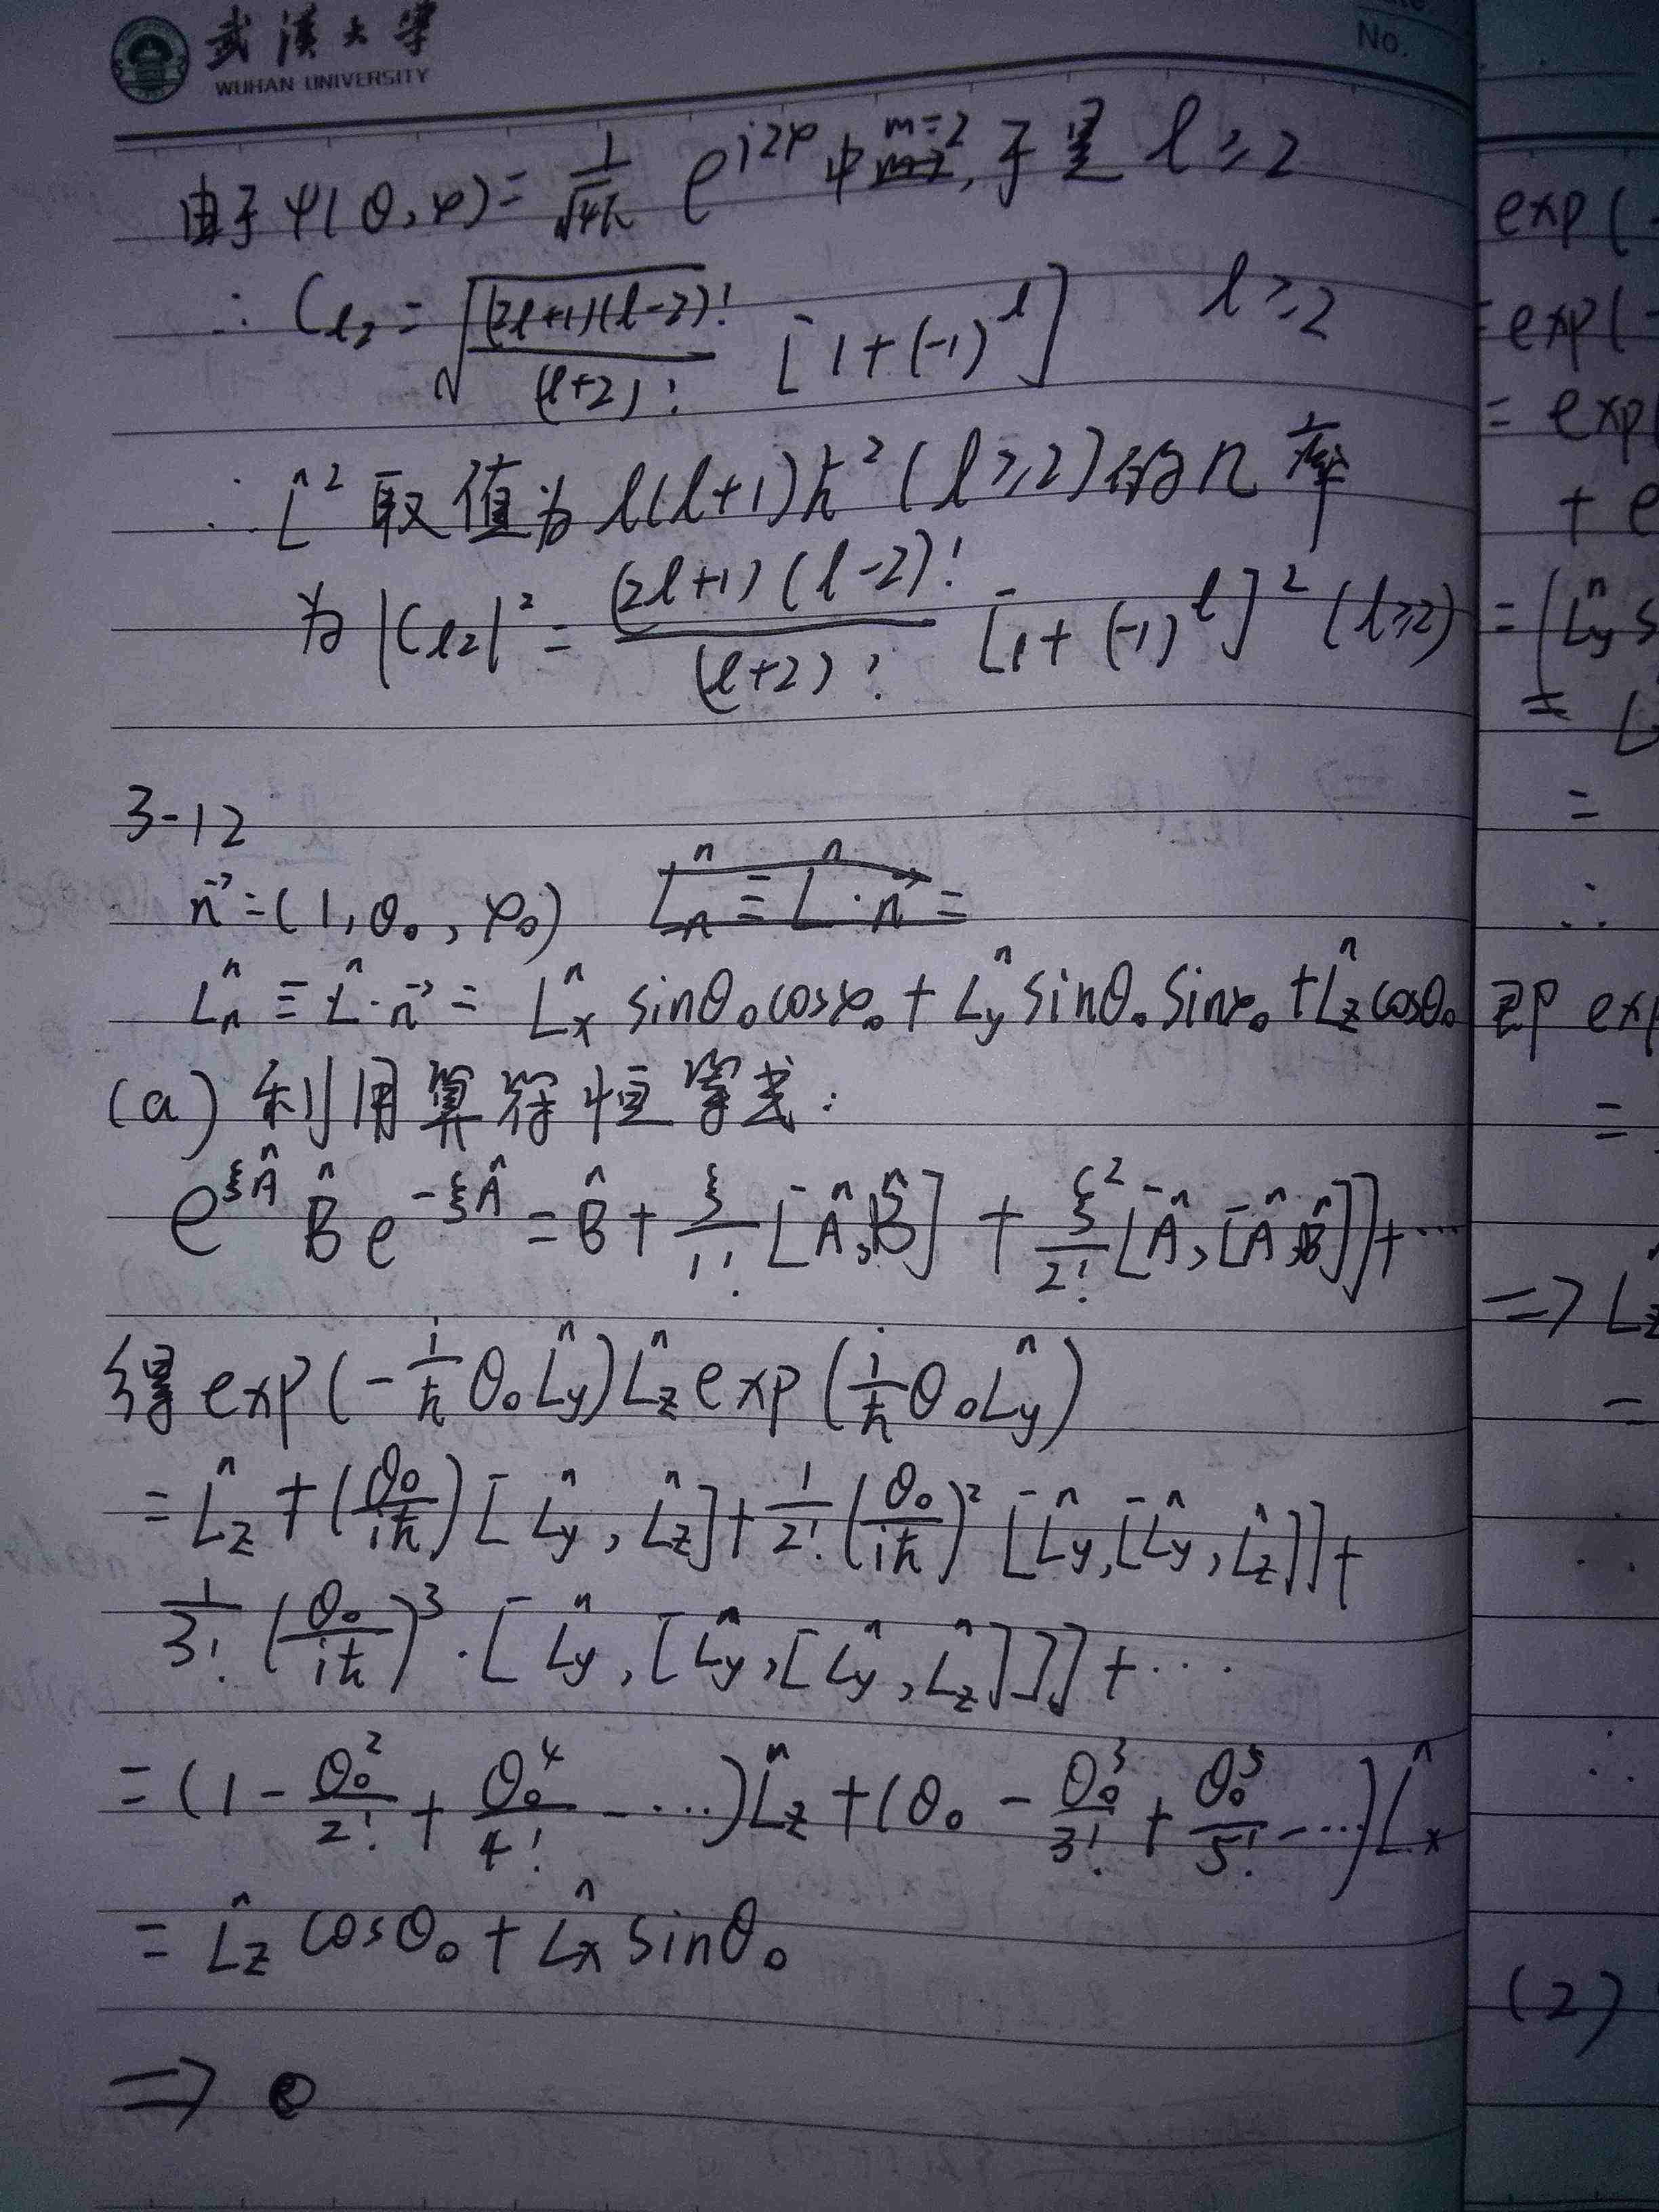 武漢大學
WUHAN UNIVERSITY
No.
由于 ψ(θ,φ) = 1/√4π e^{i2φ} 中 m=2, 于是 l ≥ 2
∴ C_{l2} = √((2l+1)(l-2)!/(l+2)!) [1+(-1)^l] l ≥ 2
∴ L̂² 取值为 l(l+1)ħ² (l≥2) 的几率
为 |C_{l2}|² = (2l+1)(l-2)!/(l+2)! [1+(-1)^l]² (l≥2)
3-12
n⃗ = (1, θ₀, φ₀) L̂ₙ ≡ L̂·n⃗ =
L̂ₙ ≡ L̂·n⃗ = L̂ₓ sinθ₀cosφ₀ + L̂_y sinθ₀ sinφ₀ + L̂_z cosθ₀
(a) 利用算符恒等式:
e^{ξÂ} B̂ e^{-ξÂ} = B̂ + ξ/1! [Â,B̂] + ξ²/2! [Â,[Â,B̂]] + ⋯
得 exp(-i/ħ θ₀L̂_y) L̂_z exp(i/ħ θ₀L̂_y)
= L̂_z + (θ₀/iħ)[L̂_y, L̂_z] + 1/2! (θ₀/iħ)² [L̂_y,[L̂_y, L̂_z]] +
1/3! (θ₀/iħ)³ · [L̂_y, [L̂_y, [L̂_y, L̂_z]]] + ⋯
= (1 - θ₀²/2! + θ₀⁴/4! - ⋯)L̂_z + (θ₀ - θ₀³/3! + θ₀⁵/5! - ⋯)L̂ₓ
= L̂_z cosθ₀ + L̂ₓ sinθ₀
⇒
exp(-
= exp(-
= exp(
+ e
= (L̂_y s
= L
=
∴
即 exp
=
⇒ L̂_z
=
∴
∴
(2)